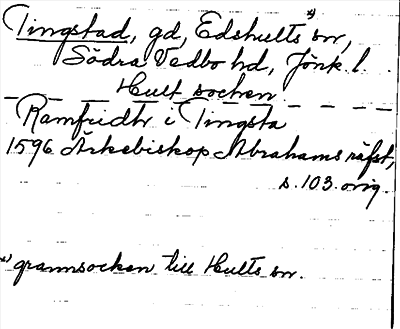 Tingstad, gd, Edshults *) sn,
Södra Vedbo hd, Jönk. l.
Hult socken
Ramfridh i Tingsta
1596 Ärkebiskop Abrahams räfst,
s. 103. orig.
*) grannsocken till Hults sn.